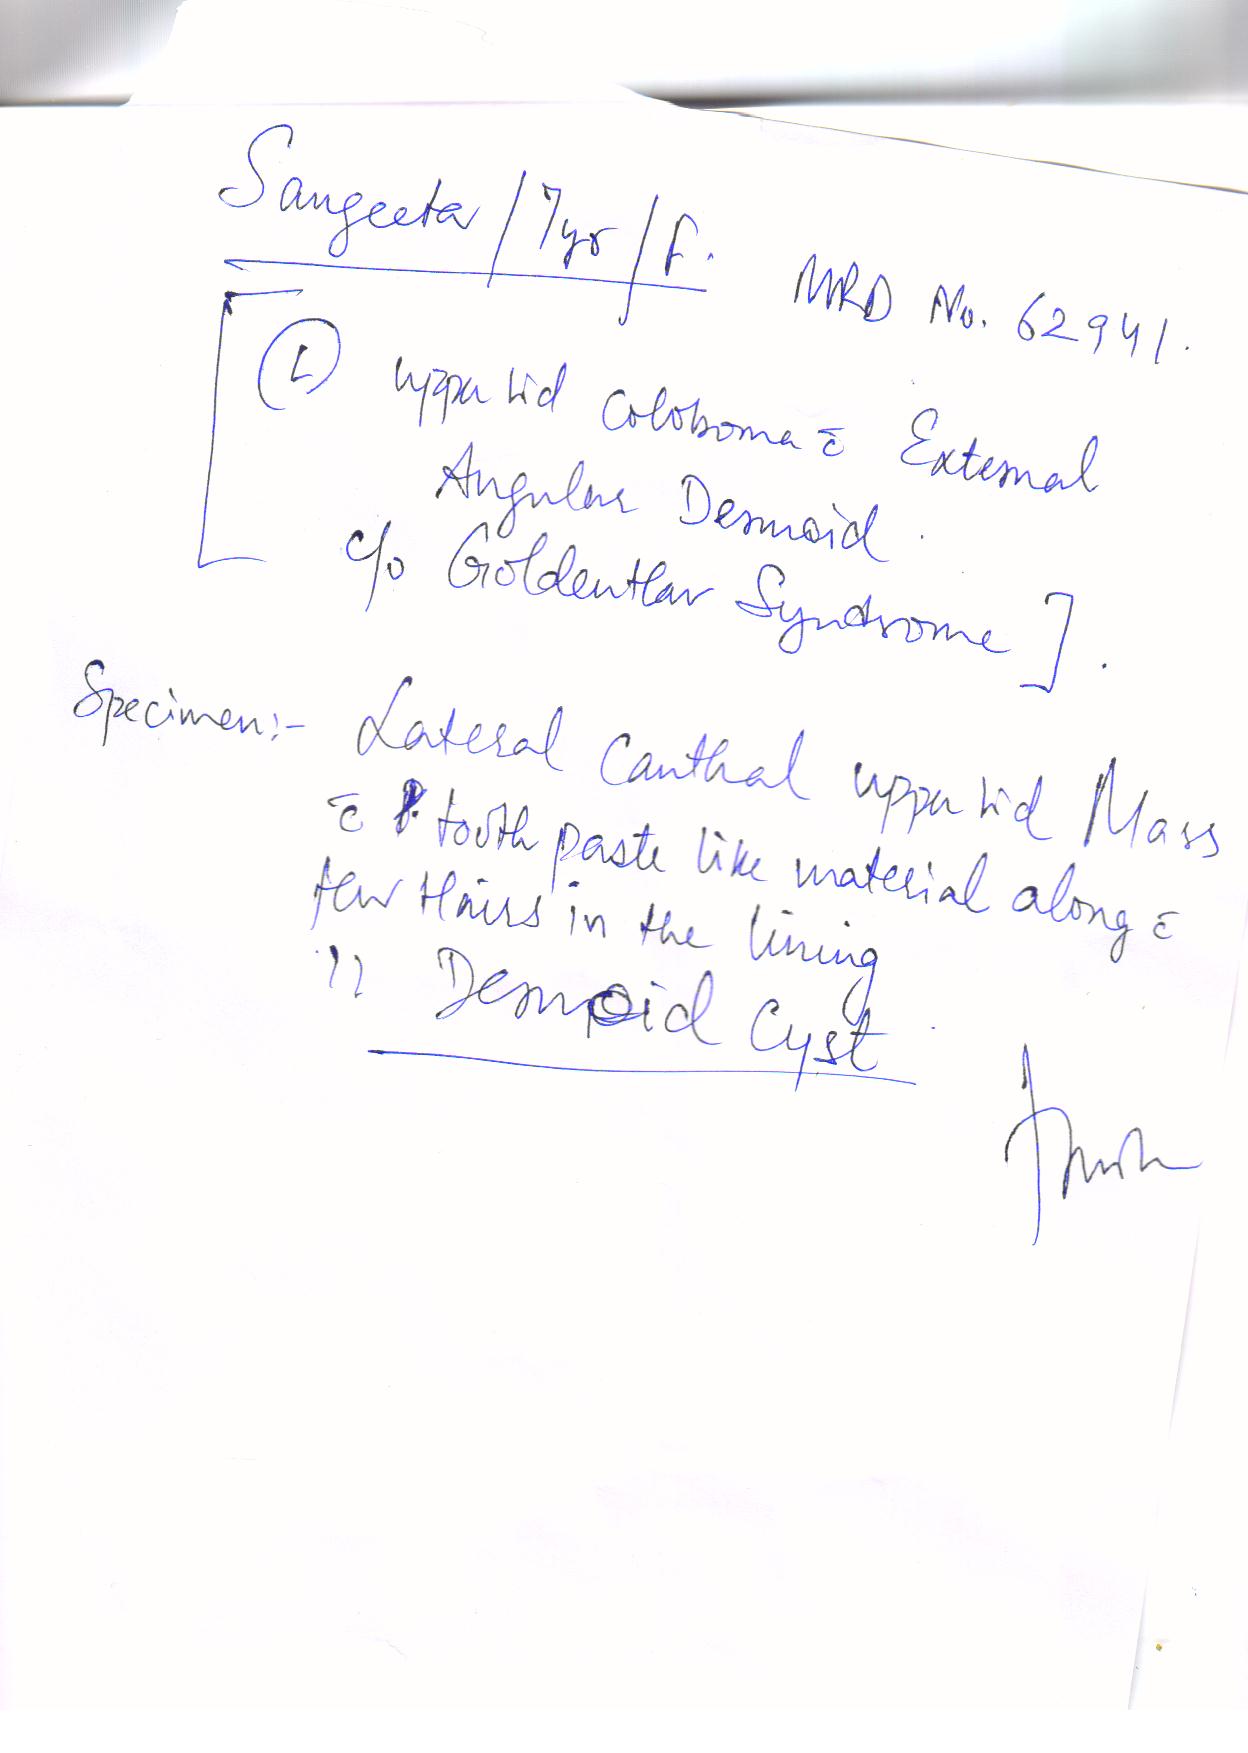 Sangeeta / 7yr / F. MRD No. 62941.
[ Ⓛ upper lid coloboma c̄ External
Angular Dermoid.
c/o Goldenhar Syndrome ].
Specimen:- Lateral Canthal upper lid Mass
c̄ tooth paste like material along c̄
few Hairs in the lining
?? Dermoid Cyst